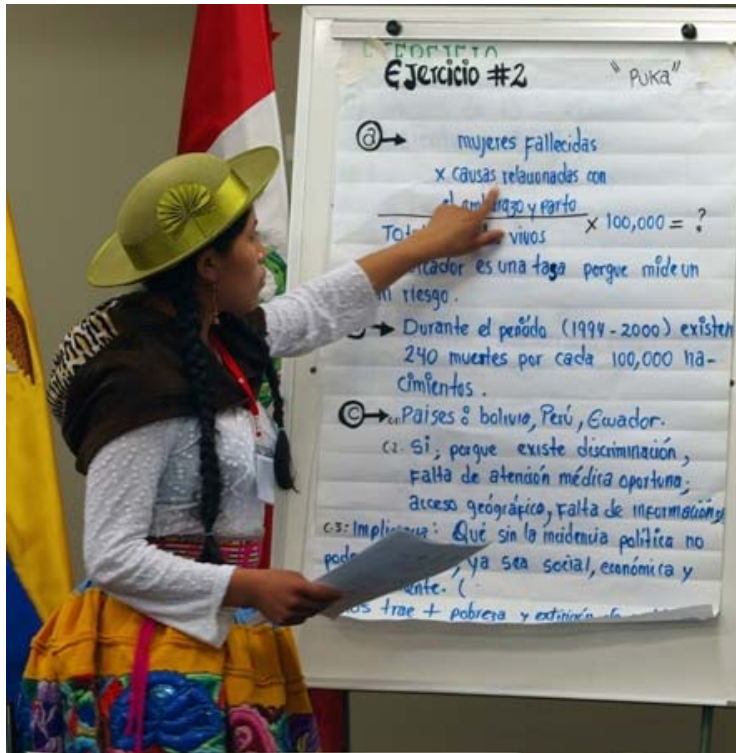 Ejercicio #2 "PUKA"
a → mujeres fallecidas
x causas relacionadas con
el embarazo y parto
Tot vivos x 100,000 = ?
cador es una tasa porque mide un
riesgo.
→ Durante el período (1994-2000) existen
240 muertes por cada 100,000 na-
cimientos.
c → c.1. Paises: bolivia, Perú, Ecuador.
c.2. Si, porque existe discriminación,
Falta de atención médica oportuna;
acceso geográfico, falta de información,
c.3: : Qué sin la incidencia política no
pode , ya sea social, económica y
ente. (
os trae + pobreza y